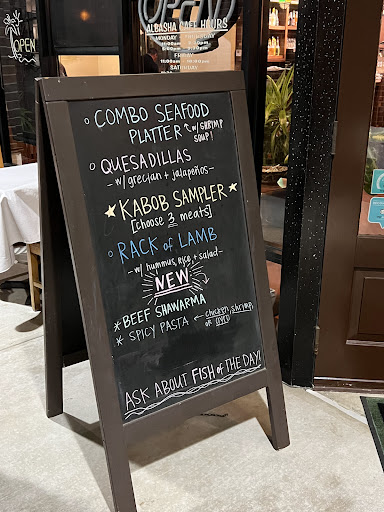 OPEN
OPEN
ALBASHA CAFE HOURS
MONDAY - THURSDAY
FRIDAY
SATURDAY
OPEN
° COMBO SEAFOOD
PLATTER ← w/ SHRIMP
SOUP!
° QUESADILLAS
- w/ grecian + jalapeños -
★ KABOB SAMPLER ★
[choose 3 meats]
° RACK of LAMB
- w/ hummus, RICE + salad -
NEW
* BEEF SHAWARMA
* SPICY PASTA ← chicken, shrimp,
or
ASK ABOUT FISH of THE DAY!